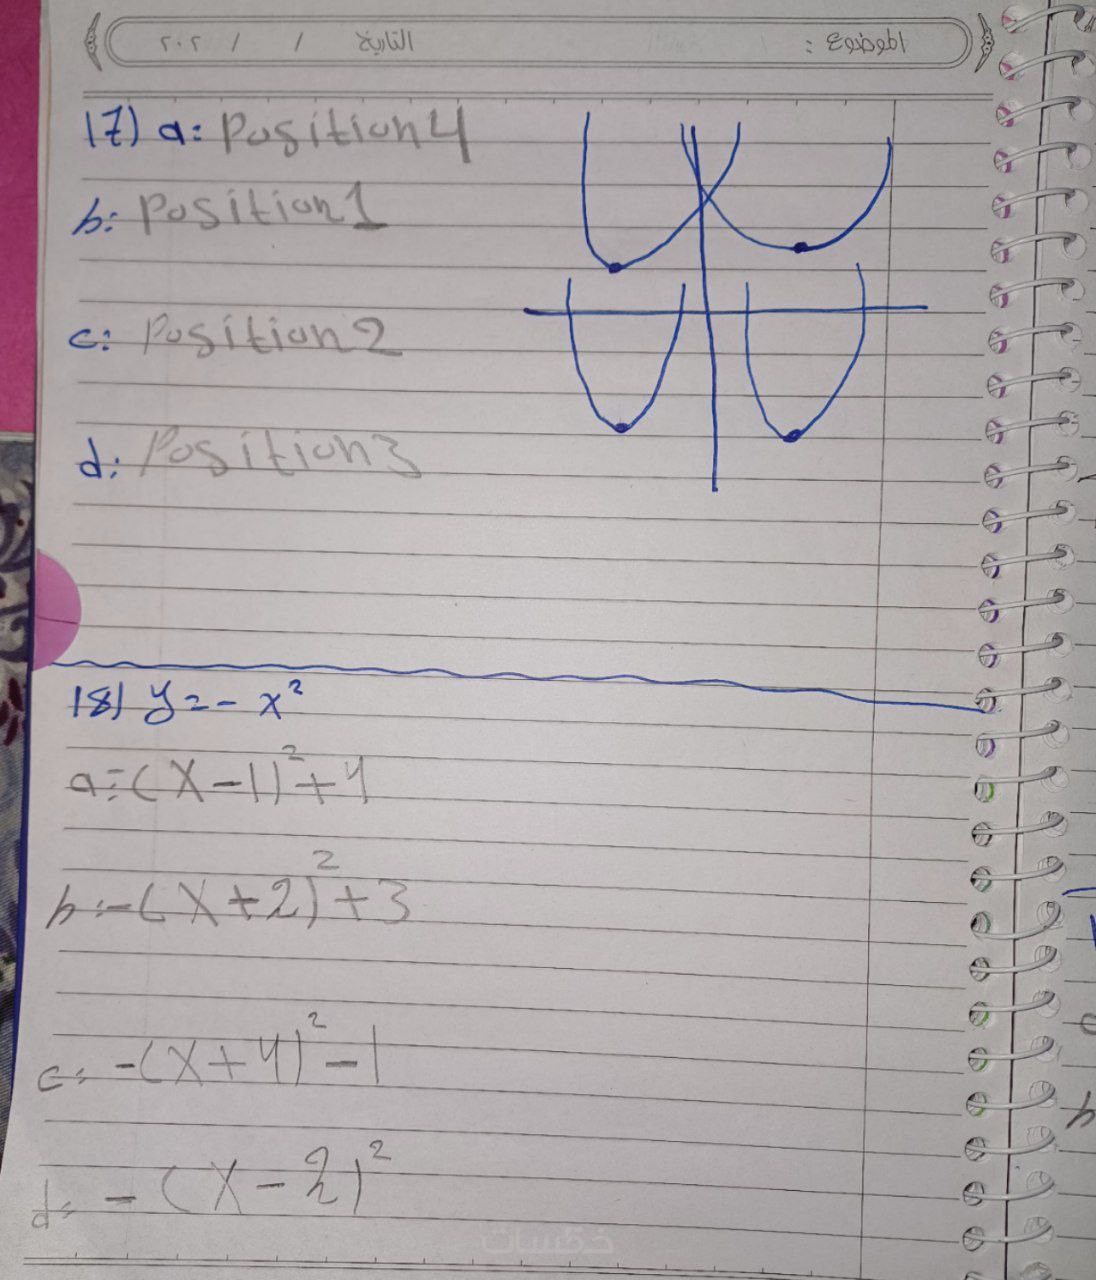 الموضوع :
التاريخ / / ٢٠٢
17) a: Position 4
b: Position 1
c: Position 2
d: Position 3
18) y = - x²
a = (x-1)² + 4
b = -(x+2)² + 3
c = -(x+4)² - 1
d = - (x - 2)²
خمسات